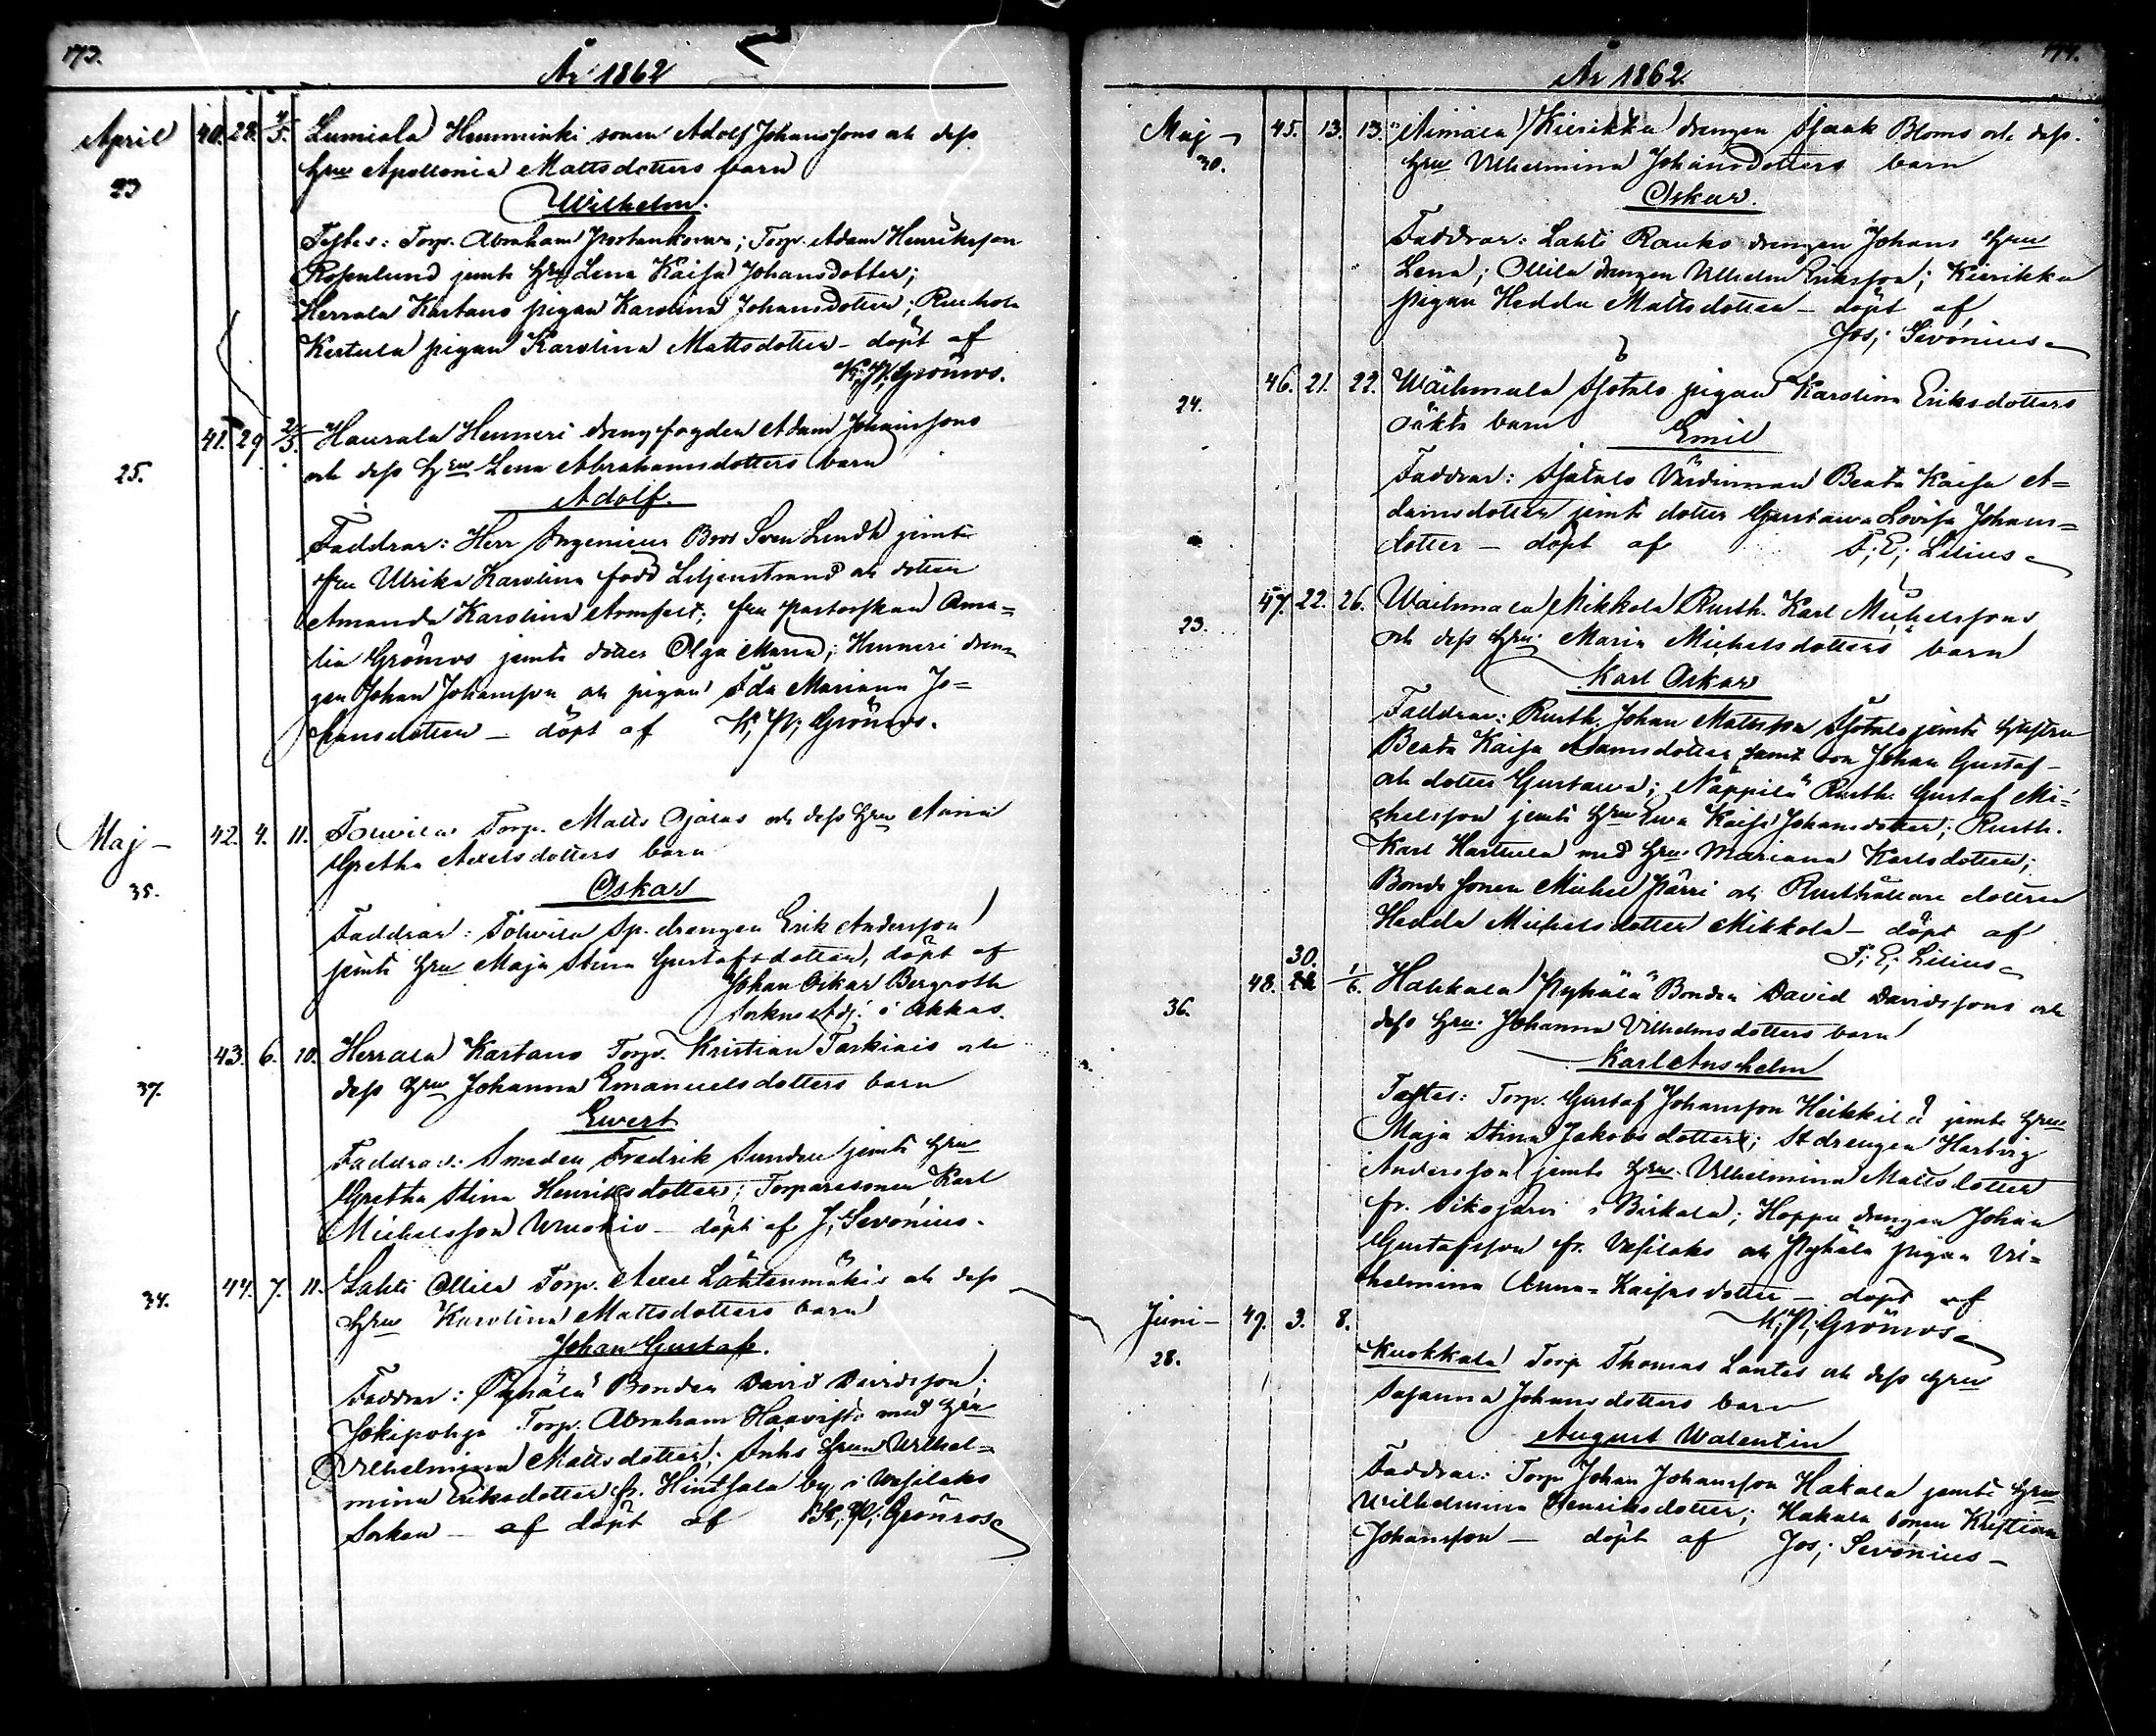 173.
År 1862
April 40. 28. 4/5. Lumiala Hemminki sonen Adolf Johanssons och dess
23 hru Apollonia Mattsdotters barn
Wilhelm.
Testes: Torp. Abraham Portankorva; Torp. Adam Henriksson
Rosenlund jemte hru Lena Kaisa Johansdotter;
Herrala Kartano pigan Karolina Johansdotter;
Kertula pigan Karolina Mattsdotter – döpt af
K; W; Grönros.
41. 29. 2/5. Haurala Hemmeri drengfogden Adam Johanssons
25. och dess hru Lena Abrahamsdotters barn
Adolf.
Faddrar: Herr Ingenieur Sven Lundh jemte
fru Ulrika Karolina född Liljenstrand och dotter
Amanda Karolina Armfelt; fru Pastorskan Ama=
lia Grönros jemte dotter Olga Maria; Hemmeri dren=
gen Johan Johansson och pigan Ida Mariana Jo=
hansdotter – döpt af K; W; Grönros.
Maj – 42. 4. 11. Torp. Matts Ojalas och dess hru Anna
35. Gretha Axelsdotters barn
Oskar
Faddrar: Sp. drengen Erik Andersson
jemte hru Maja Stina Gustafsdotter, döpt af
Johan Oskar Bergroth
Sockne Adj. i Akkas.
43. 6. 10. Herrala Kartano Torp. Kristian Tarkiais och
37. dess hru Johanna Emanuelsdotters barn
Ewert
Faddrar: Smeden Fredrik Sunden jemte hru
Gretha Stina Henriksdotter; Torparesonen Karl
Michelsson – döpt af J; Sevónius.
44. 7. 11. Lahti Ollila Torp. Axel Lähteenmäkis och dess
34. hru Karolina Mattsdotters barn
Johan Gustaf.
Faddrar: Pyhälä Bonden David Davidsson;
Jokipohja Torp. Abraham Haavisto med hru
Vilhelmina Mattsdotter; Enks hrun Wilhel=
mina Eriksdotter fr. Hinsala by i Wesilaks
Socken – af döpt af K; W; Grönros
174.
År 1862
Maj – 45. 13. 13. Aimala Kierikka drengen Isaak Bloms och dess
30. hru Vilhelmina Johansdotters barn
Oskar.
Faddrar: Lahti Rauko drengen Johans hru
Lena; Ollila drengen Vilhelm Eriksson; Kierikka
pigan Hedda Mattsdotter – döpt af
Jos; Sevónius –
46. 21. 22. Waihmala Isotalo pigan Karolina Eriksdotters
24. oäkta barn
Emil
Faddrar: Isotalo Värdinnan Beata Kaisa A=
damsdotter jemte dotter Gustava Lovisa Johans=
dotter – döpt af F; E; Lilius –
47. 22. 26. Waihmala Mikkola Rusth. Karl Michelssons
23. och dess hru Maria Michelsdotters barn
Karl Oskar
Faddrar: Rusth. Johan Mattsson Isotalo jemte hustru
Beata Kaisa Adamsdotter samt son Johan Gustaf
och dotter Gustawa; Näppilä Rusth. Gustaf Mi=
chelsson jemte hru Ewa Kaisa Johansdotter; Rusth.
Karl Hartula med hru Mariana Karlsdotter;
Bonde sonen Michel Pärri och Rusthållare dottren
Hedda Michelsdotter Mikkola – döpt af
F; E; Lilius –
30.
48. 1/6. Hakkala Pyhälä Bonden David Davidssons och
36. dess hru Johanna Vilhelmsdotters barn
Karl Anshelm
Testes: Torp. Gustaf Johansson Heikkilä jemte hru
Maja Stina Jakobsdotter; Stdrengen Hartvig
Andersson jemte hru Vilhelmina Mattsdotter
fr. Sikojärvi i Birkala; Hoppu drengen Johan
Gustafsson fr. Vesilaks och Pyhälä pigan Vil=
helmina Anna-Kaisasdotter – döpt af
K; W; Grönros
Juni – 49. 3. 8.
28. Kuokkala Torp Thomas Lantes och dess hru
Susanna Johansdotters barn
August Walentin
Faddrar: Torp Johan Johansson Hakala jemte hru
Wilhelmina Henriksdotter; Hakala sonen Kristian
Johansson – döpt af Jos; Sevónius –